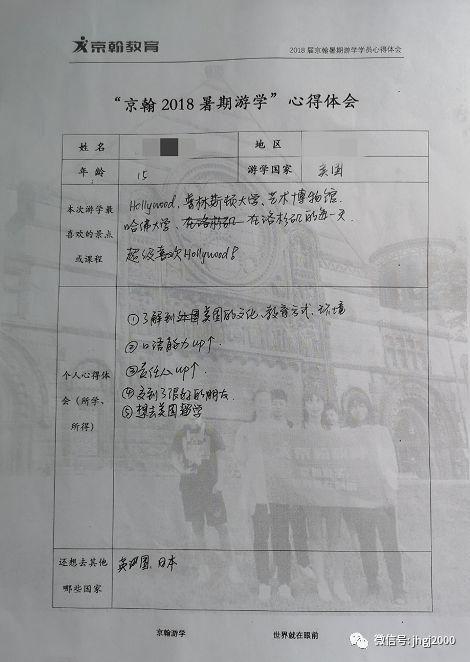 京翰教育
2018届京翰暑期游学学员心得体会
“京翰2018暑期游学”心得体会
姓 名
地 区
年 龄 15 游学国家 美国
本次游学最喜欢的景点或课程
Hollywood、普林斯顿大学、艺术博物馆、
哈佛大学、在洛杉矶 在洛杉矶的每一天.
超级喜欢Hollywood!
个人心得体会(所学、所得)
①了解到外国美国的文化、教育方式、环境
②口语能力up↑.
③责任心up↑.
④交到了很好的朋友.
⑤想去美国留学
还想去其他哪些国家
英国、日本
京翰游学
世界就在眼前
微信号: jhgj2000